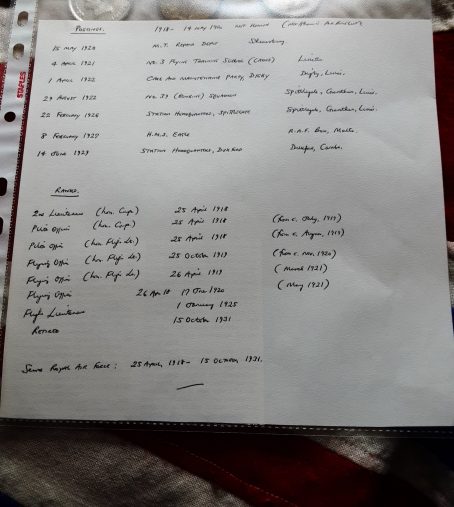 STAPLES
POSTINGS. 1918 - 14 MAY 1920 NOT KNOWN
15 MAY 1920 M.T. REPAIR DEPOT Shrewsbury
4 APRIL 1921 NO. 3 FLYING TRAINING SCHOOL Lincoln
1 APRIL 1922 CARE AND MAINTENANCE PARTY, DIGBY Digby, Lincs.
29 AUGUST 1922 NO. 39 SQUADRON Spittlegate, Grantham, Lincs.
22 FEBRUARY 1926 STATION HEADQUARTERS, SPITTLEGATE Spittlegate, Grantham, Lincs.
8 FEBRUARY 1927 H.M.S. EAGLE R.A.F. Base, Malta.
14 JUNE 1929 STATION HEADQUARTERS, DUXFORD Duxford, Cambs.
RANKS.
2nd Lieutenant (hon. Capt.) 25 April 1918
Pilot Officer (hon. Capt.) 25 April 1918 (from c. July, 1919)
Pilot Officer (hon. Flight Lt.) 25 April 1918 (from c. August, 1919)
Flying Officer (hon. Flight Lt.) 25 October 1919 (from c. Nov. 1920)
Flying Officer (hon. Flight Lt.) 26 April 1919 (March 1921)
Flying Officer 17 June 1920 (May 1921)
Flight Lieutenant 1 January 1925
Retired 15 October 1931
Service Royal Air Force: 25 April, 1918 - 15 October, 1931.